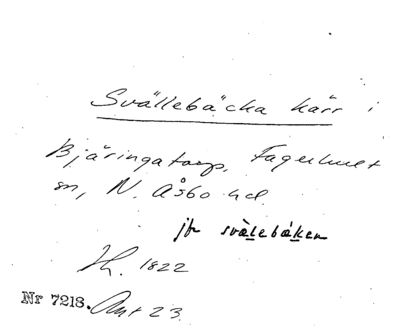 Svällebäcka kärr i
Bjäringatorp, Fagerhult
sn, N. Åsbo hd
jfr svàlebá̈ken
Lh. 1822
Nr 7218. Akt 23